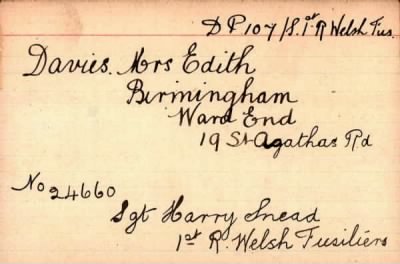 DP 107/S. 1st R Welsh Fus.
Davies. Mrs Edith
Birmingham
Ward End
19 St Agathas Rd
No 24660
Sgt Harry Snead
1st R. Welsh Fusiliers